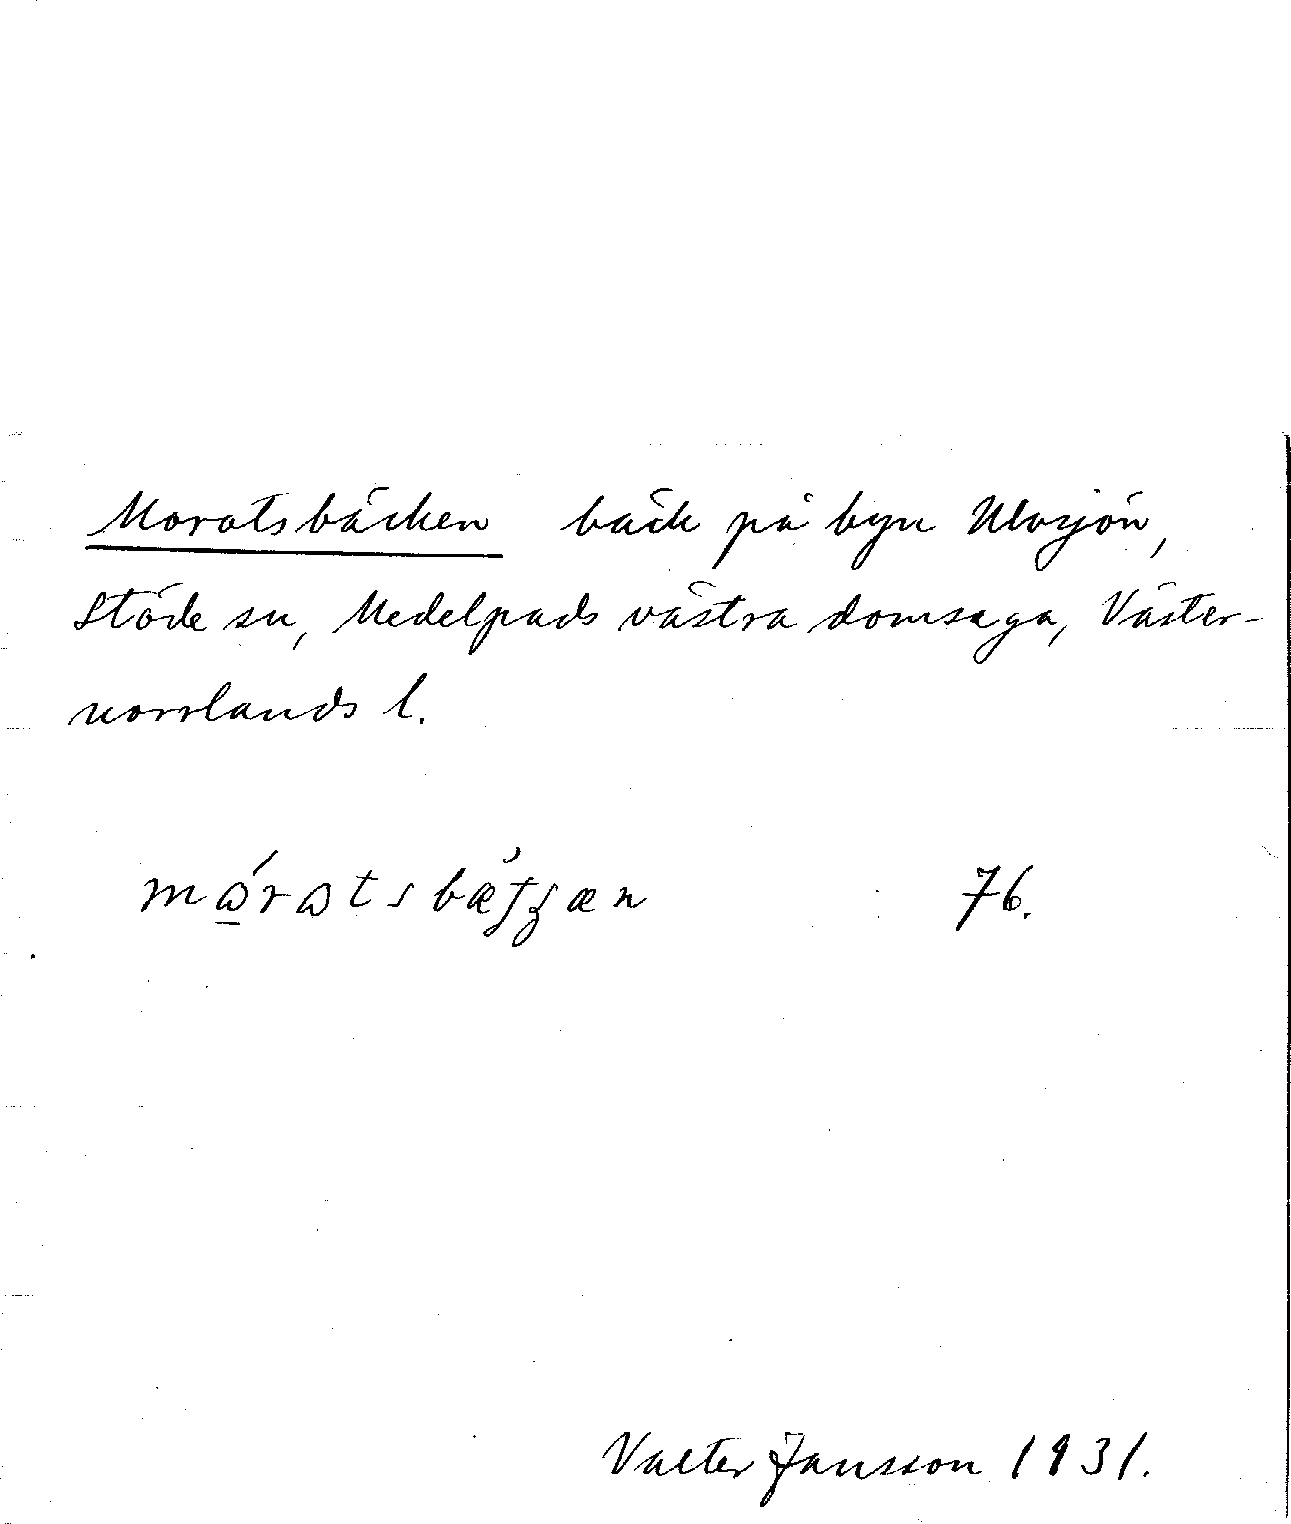 Moratsbäcken bäck på byn Ulvsjön,
Stöde sn, Medelpads västra domsaga, Väster-
norrlands l.
76.
Valter Jansson 1931.